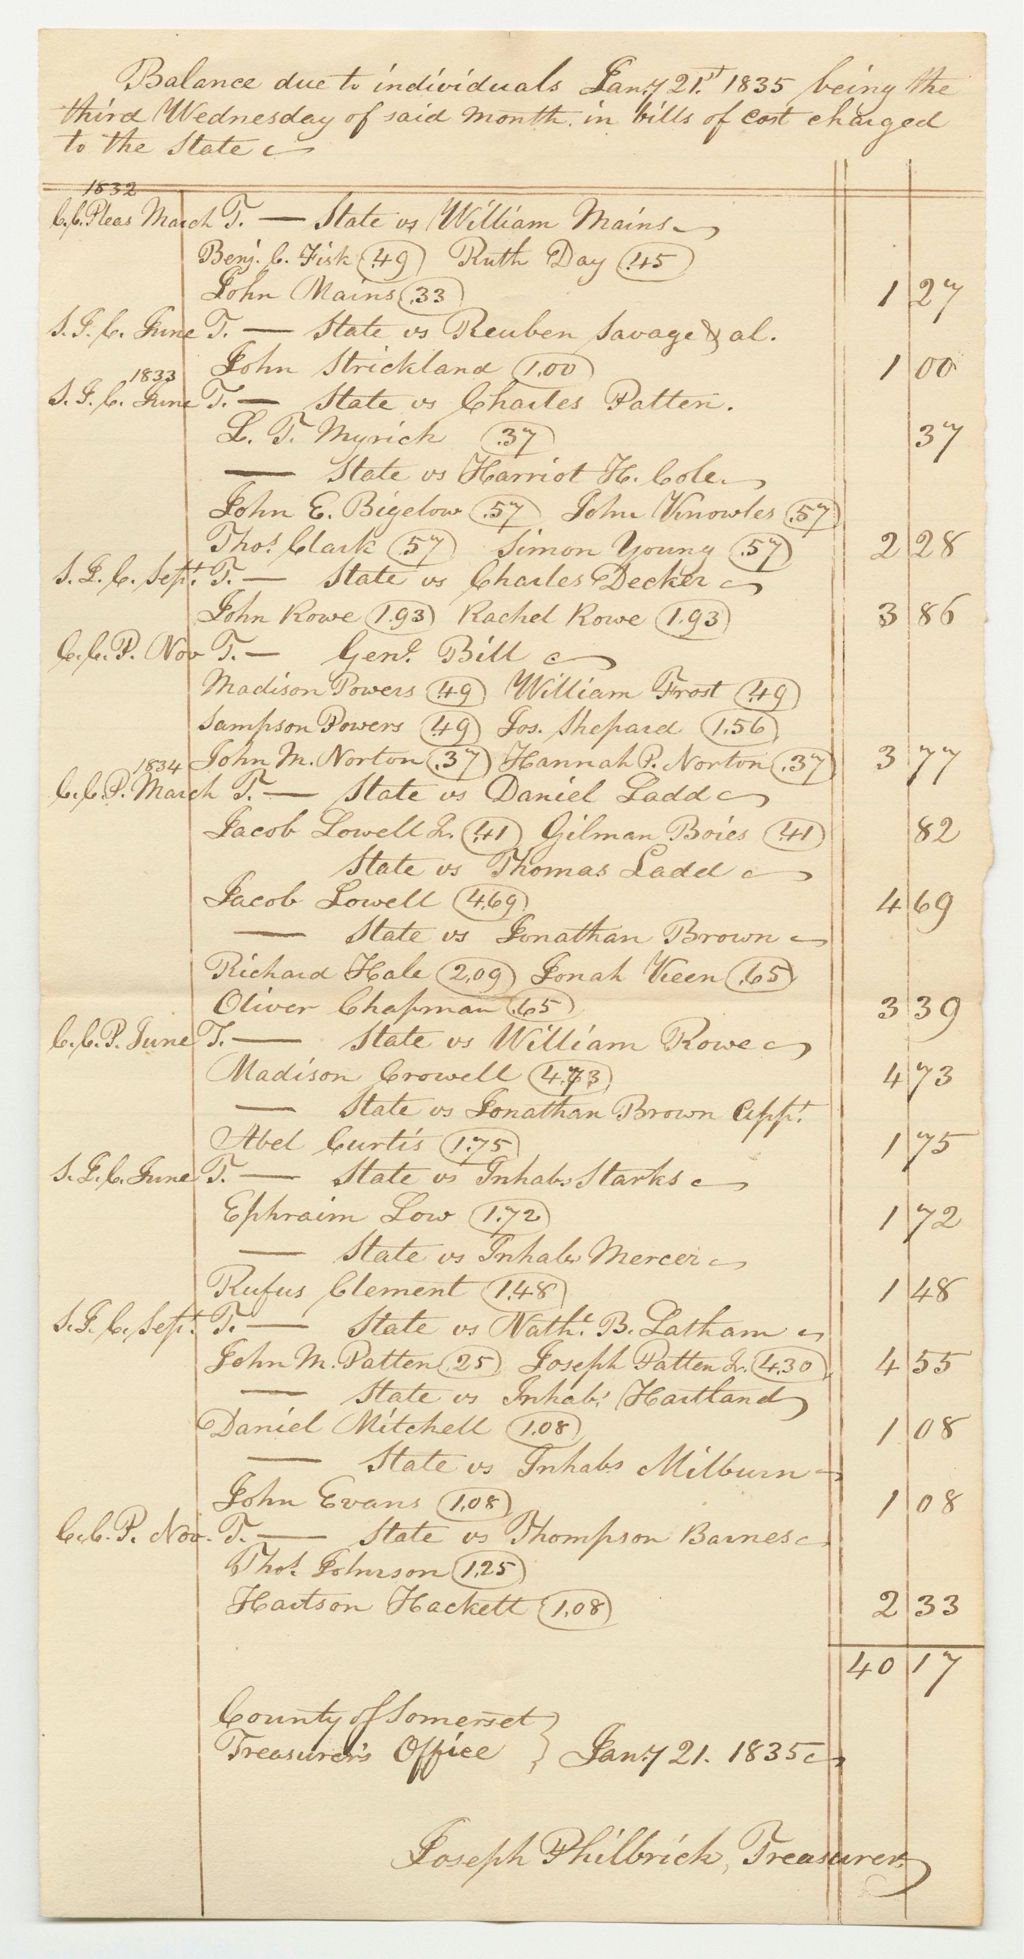 Balance due to individuals Jany 21st 1835 being the
third Wednesday of said month in bills of cost charged
to the State
1832
C.C. Pleas March T. — State vs William Mains
Benj. C. Fisk .49 Ruth Day .45
John Mains .33 1 27
S.J.C. June T. — State vs Reuben Savage & al.
John Strickland 1.00 1 00
1833
S.J.C. June T. — State vs Charles Patten.
L. T. Myrick .37 37
— State vs Harriot H. Cole
John E. Bigelow .57 John Knowles .57
Thos. Clark .57 Simon Young .57 2 28
S.J.C. Sept. T. — State vs Charles Decker
John Rowe 1.93 Rachel Rowe 1.93 3 86
C.C.P. Nov T. — Genl. Bill
Madison Powers .49 William Frost .49
Sampson Powers .49 Jos. Shepard 1.56
John M. Norton .37 Hannah P. Norton .37 3 77
1834
C.C.P. March T. — State vs Daniel Ladd
Jacob Lowell Jr. .41 Gilman Boies .41 82
State vs Thomas Ladd
Jacob Lowell 4.69 4 69
— State vs Jonathan Brown
Richard Hale 2.09 Jonah Keen .65
Oliver Chapman .65 3 39
C.C.P. June T. — State vs William Rowe
Madison Crowell 4.73 4 73
— State vs Jonathan Brown Appt.
Abel Curtis 1.75 1 75
S.J.C. June T. — State vs Inhabs Starks
Ephraim Low 1.72 1 72
— State vs Inhabs Mercer
Rufus Clement 1.48 1 48
S.J.C. Sept. T. — State vs Nathl. B. Latham
John M. Patten .25 Joseph Patten Jr. 4.30 4 55
— State vs Inhabs Hartland
Daniel Mitchell 1.08 1 08
— State vs Inhabs Milburn
John Evans 1.08 1 08
C.C.P. Nov. T. — State vs Thompson Barnes
Thos. Johnson 1.25
Hartson Hackett 1.08 2 33
40 17
County of Somerset
Treasurer's Office } Jany 21. 1835
Joseph Philbrick, Treasurer